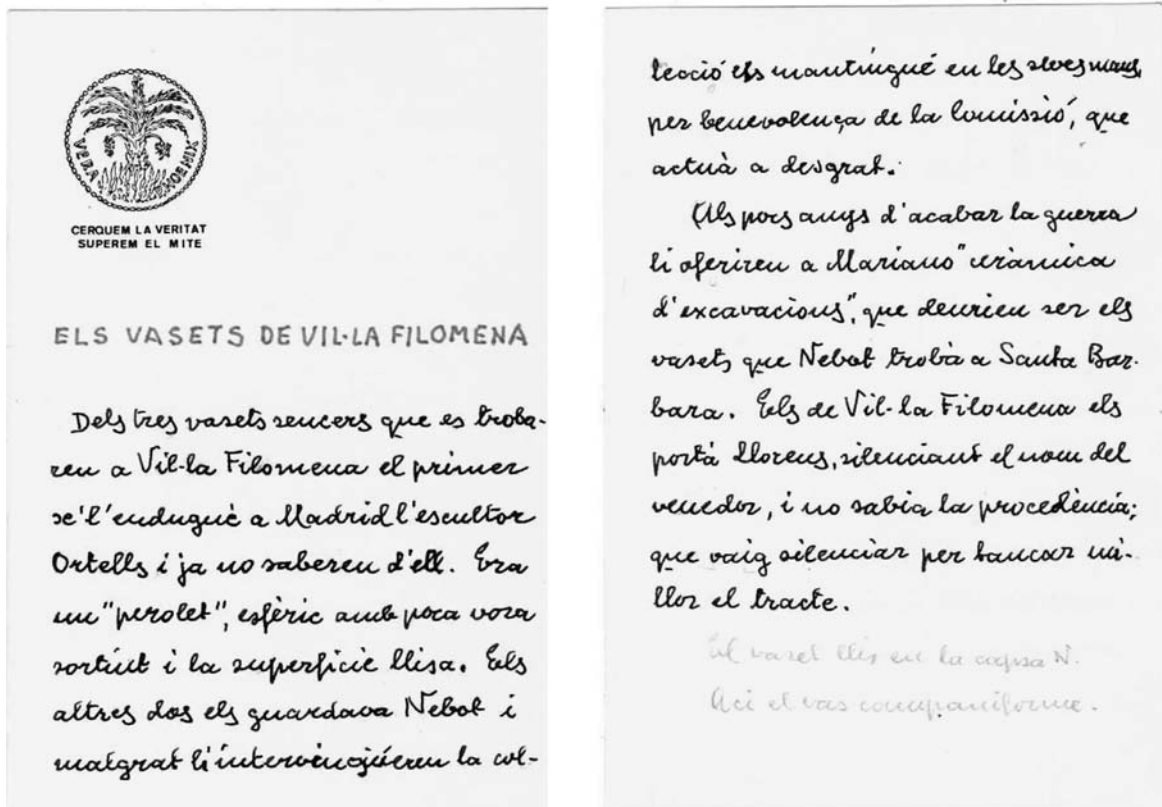 VERA PHOENIX
CERQUEM LA VERITAT
SUPEREM EL MITE
ELS VASETS DE VIL·LA FILOMENA
Dels tres vasets sencers que es troba-
ren a Vil·la Filomena el primer
se'l'endugué a Madrid l'escultor
Ortells i ja no saberen d'ell. Era
un "perolet", esfèric amb poca vora
sortint i la superfície llisa. Els
altres dos els guardava Nebot i
malgrat li intervingúeren la col-
lecció els mantingué en les seves mans,
per benevolença de la Comissió, que
actuà a desgrat.
Als pocs anys d'acabar la guerra
li oferiren a Mariano "ceràmica
d'excavacions", que deurien ser els
vasets que Nebot trobà a Santa Bar-
bara. Els de Vil·la Filomena els
portá Llorens, silenciant el nom del
venedor, i no sabia la procedència;
que vaig silenciar per tancar mi-
llor el tracte.
El vaset llis en la capsa N.
Aci el vas campaniforme.